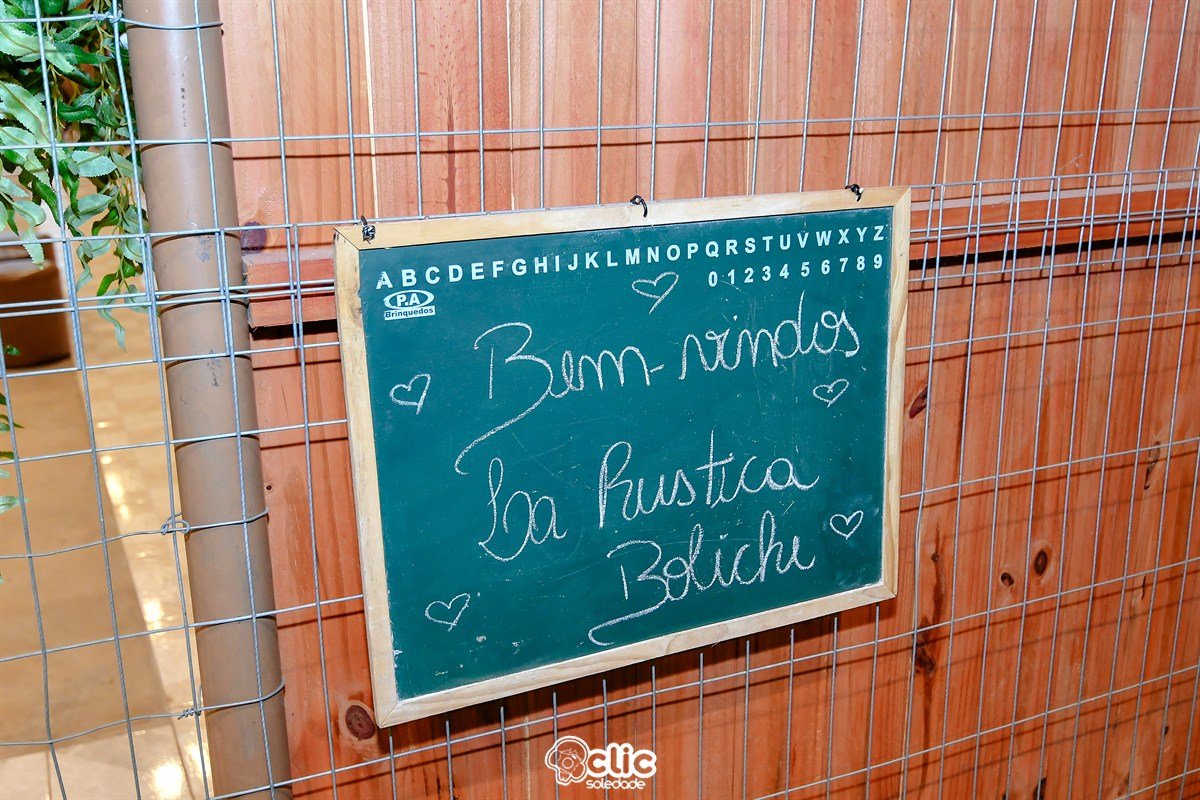 ABCDEFGHIJKLMNOPQRSTUVWXYZ
0 1 2 3 4 5 6 7 8 9
P.A
Brinquedos
Bem-vindos
La Rustica
Boliche
clic
soledade